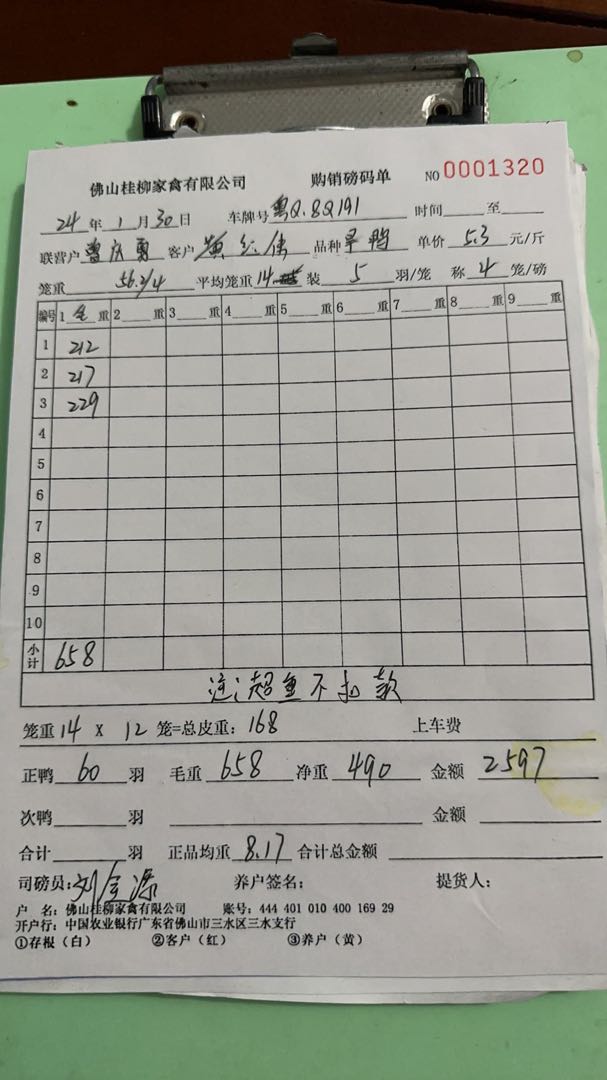 佛山桂柳家禽有限公司 购销磅码单 NO 0001320
24 年 1 月 30 日 车牌号 粤Q.8Q191 时间 至
联营户 曾庆勇 客户 黄 伟 品种 旱鸭 单价 5.3 元/斤
笼重 56.2/4 平均笼重 14 装 5 羽/笼 称 4 笼/磅
编号 1 全 重 2 重 3 重 4 重 5 重 6 重 7 重 8 重 9 重
1 212
2 217
3 229
4
5
6
7
8
9
10
小计 658
注:超重不扣款
笼重 14 X 12 笼=总皮重: 168 上车费
正鸭 60 羽 毛重 658 净重 490 金额 2597
次鸭 羽 金额
合计 羽 正品均重 8.17 合计总金额
司磅员: 刘金 养户签名: 提货人:
户 名: 佛山桂柳家禽有限公司 账号: 444 401 010 400 169 29
开户行: 中国农业银行广东省佛山市三水区三水支行
①存根（白） ②客户（红） ③养户（黄）